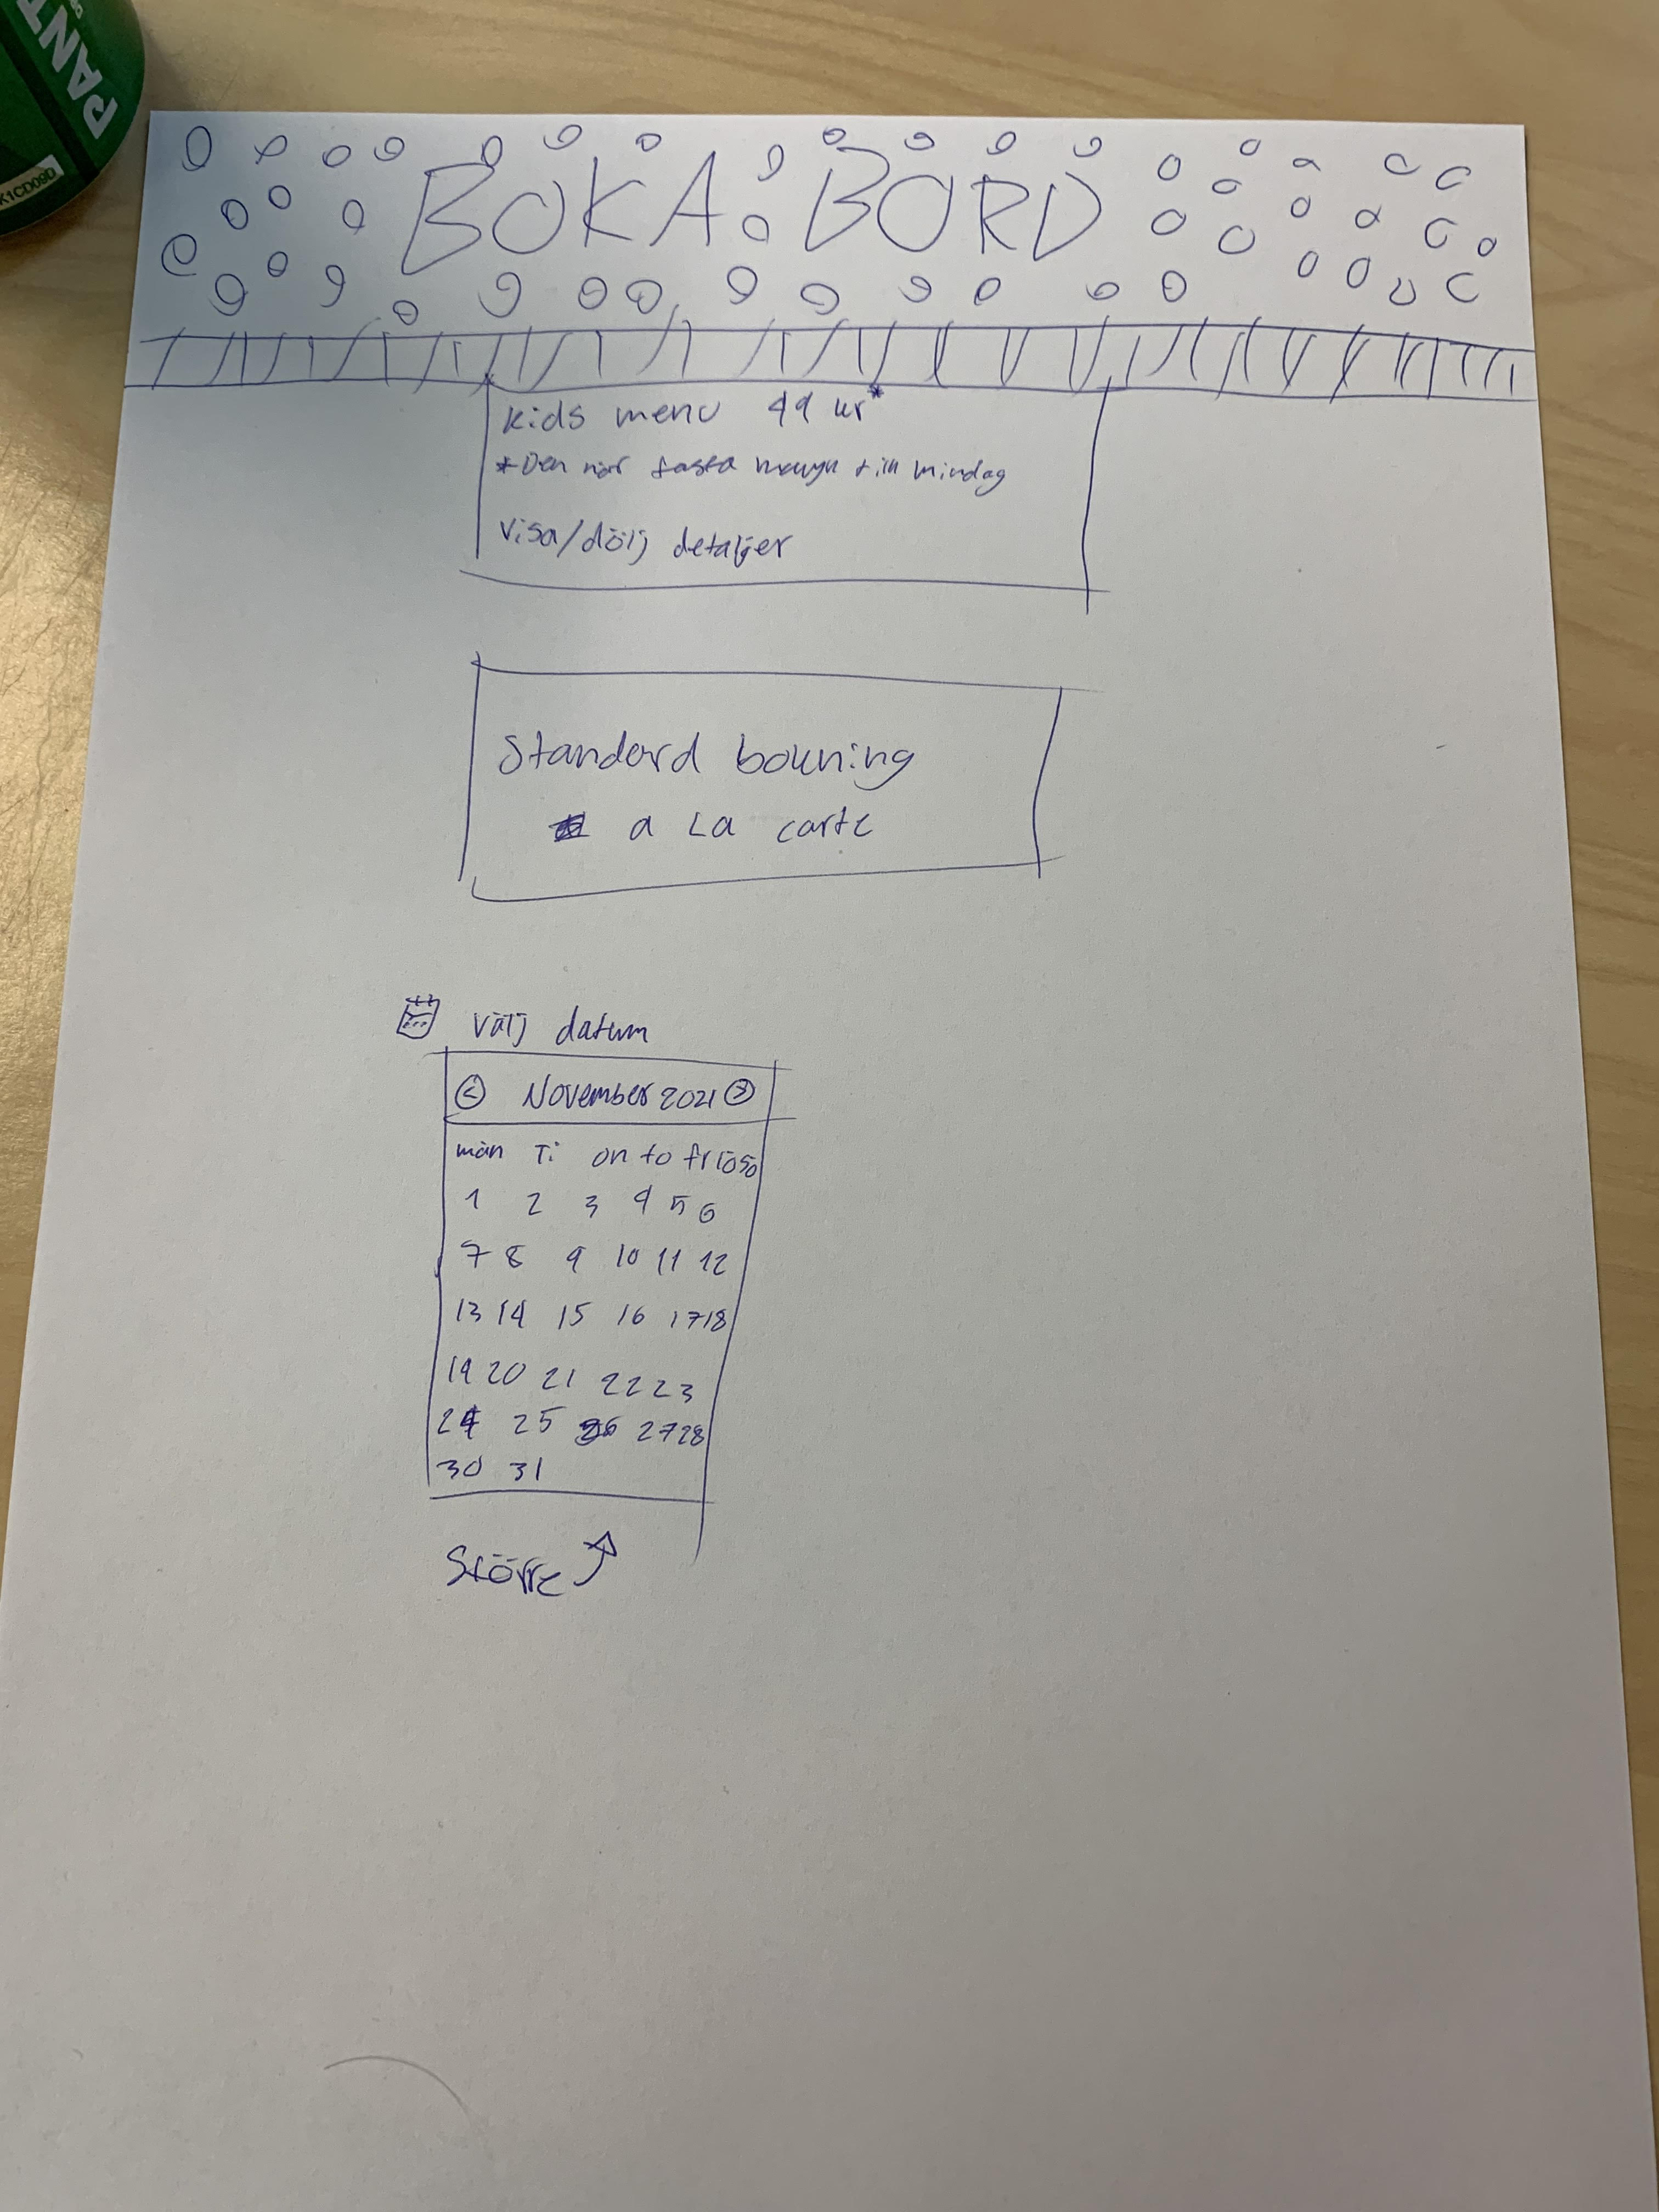 PANT
K1CD09D
BOKA BORD
Kids menu 49 kr*
*Den här fasta menyn till
Visa/dölj detaljer
Standard bokning
a La carte
Välj datum
< November 2021 >
mån Ti on to fr lö sö
1 2 3 4 5 6
7 8 9 10 11 12
13 14 15 16 17 18
19 20 21 22 23
24 25 26 27 28
30 31
Större